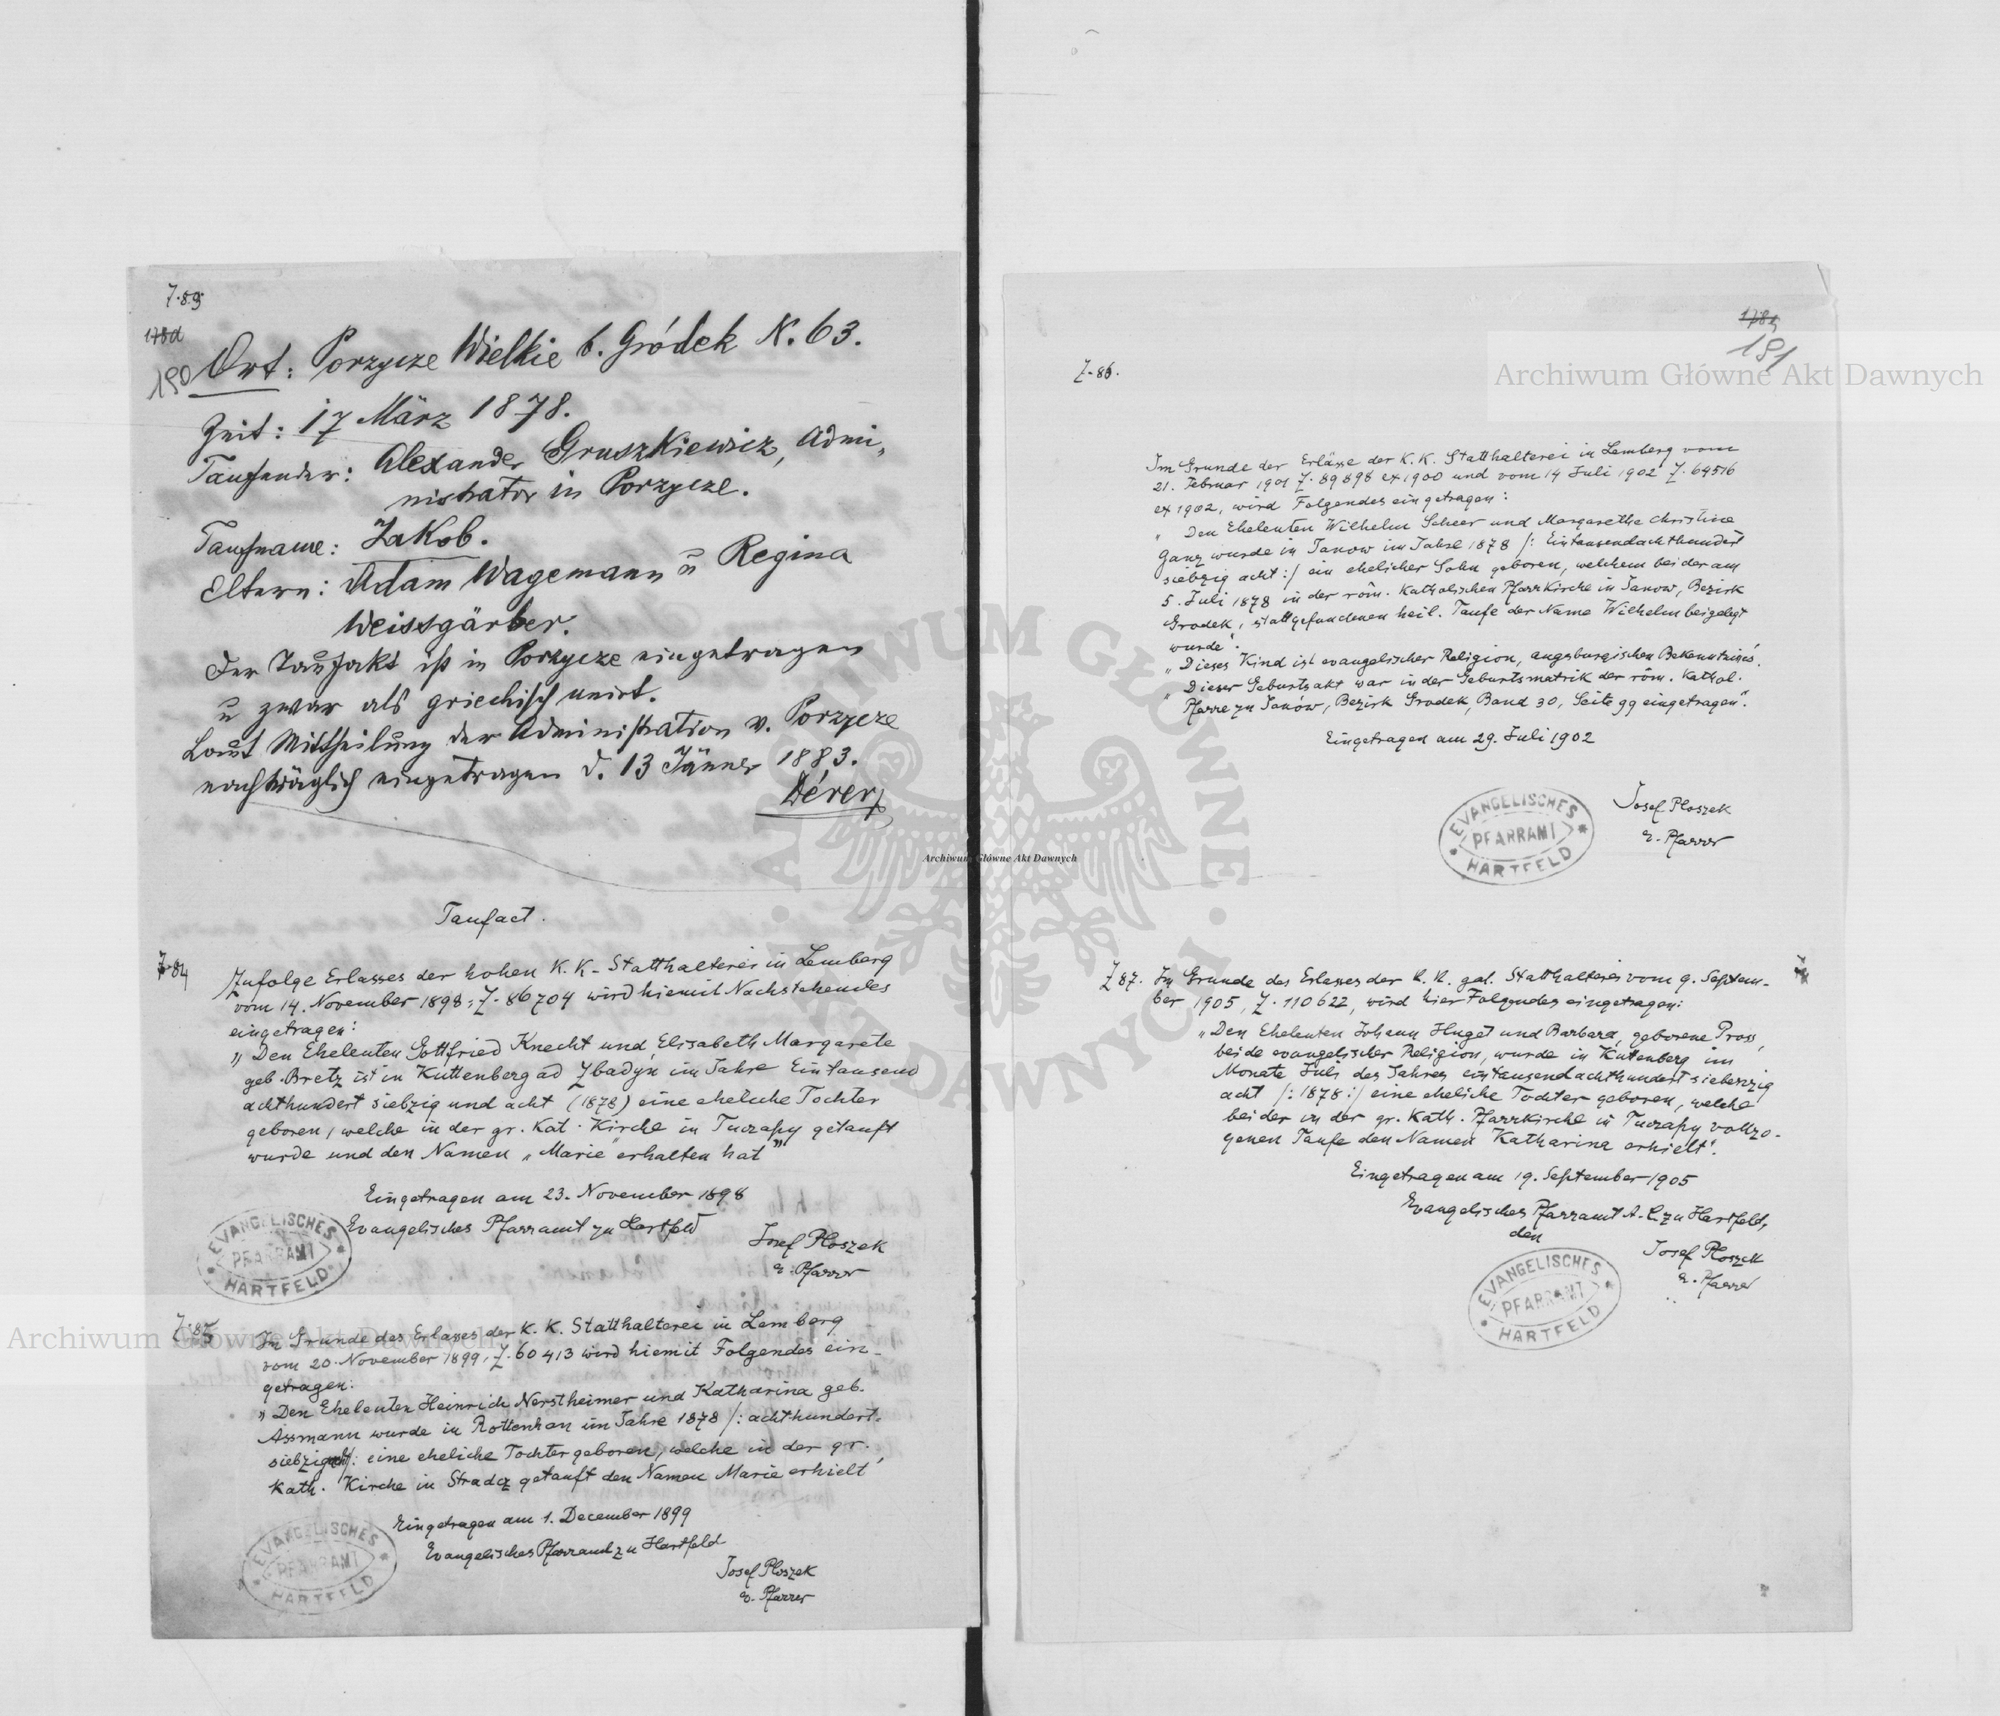 Z. 83
178d
190
Ort: Porzycze Wielkie b. Gródek N. 63.
Zeit: 17 März 1878.
Taufender: Alexander Gruszkiewicz, Admi-
nistrator in Porzycze.
Taufname: Jakob.
Eltern: Adam Wagemann u Regina
Weissgärber.
Der Taufakt ist in Porzycze eingetragen
u zwar als griechisch uniert.
Laut Mittheilung der Administration v. Porzycze
nachträglich eingetragen d. 13 Jänner 1883.
Dérer
Taufact.
Z. 84
Zufolge Erlasses der hohen K. K. Statthalterei in Lemberg
vom 14. November 1898, Z. 86704 wird hiemit Nachstehendes
eingetragen:
„Den Eheleuten Gottfried Knecht und Elisabeth Margarete
geb. Bretz ist in Kuttenberg ad Zbadyn im Jahre Eintausend
achthundert siebzig und acht (1878) eine eheliche Tochter
geboren, welche in der gr. Kat. Kirche in Tuczapy getauft
wurde und den Namen „Marie“ erhalten hat“
Eingetragen am 23. November 1898
Evangelisches Pfarramt zu Hartfeld
Josef Ploszek
e. Pfarrer
EVANGELISCHES
PFARRAMT
HARTFELD
Z. 85
Im Grunde des Erlasses der K. K. Statthalterei in Lemberg
vom 20. November 1899, Z. 60413 wird hiemit Folgendes ein-
getragen:
„Den Eheleuten Heinrich Nerstheimer und Katharina geb.
Assmann wurde in Rottenhan im Jahre 1878 /: achthundert-
siebzigacht :/ eine eheliche Tochter geboren, welche in der gr.
Kath. Kirche in Stradcz getauft den Namen Marie erhielt“
Eingetragen am 1. December 1899
Evangelisches Pfarramt zu Hartfeld
Josef Ploszek
e. Pfarrer
EVANGELISCHES
PFARRAMT
HARTFELD
181
Z. 86.
Im Grunde der Erlässe der K. K. Statthalterei in Lemberg vom
21. Februar 1901 Z. 89898 ex 1900 und vom 14 Juli 1902 Z. 64516
ex 1902, wird Folgendes eingetragen:
„Den Eheleuten Wilhelm Scheer und Margarethe Christine
Ganz wurde in Janow im Jahre 1878 /: Eintausendachthundert
siebzig acht :/ ein ehelicher Sohn geboren, welchem bei der am
5. Juli 1878 in der röm. Katholischen Pfarrkirche in Janow, Bezirk
Grodek, stattgefundenen heil. Taufe der Name Wilhelm beigelegt
wurde“.
„Dieses Kind ist evangelischer Religion, augsburgischen Bekenntnises“.
„Dieser Geburtsakt war in der Geburtsmatrik der röm. Kathol.
Pfarre zu Janów, Bezirk Grodek, Band 30, Seite 99 eingetragen“.
Eingetragen am 29. Juli 1902
Josef Ploszek
e. Pfarrer
EVANGELISCHES
PFARRAMT
HARTFELD
Z 87. Im Grunde des Erlasses der K. K. gal. Statthalterei vom 9. Septem-
ber 1905, Z. 110622, wird hier Folgendes eingetragen:
„Den Eheleuten Johann Huget und Barbara, geborene Pross,
beide evangelischer Religion, wurde in Kutenberg im
Monate Juli des Jahres eintausendachthundert siebenzig
acht /: 1878 :/ eine eheliche Tochter geboren, welche
bei der in der gr. Kath. Pfarrkirche in Tuczapy vollzo-
genen Taufe den Namen Katharina erhielt“.
Eingetragen am 19. September 1905
Evangelisches Pfarramt A. C. zu Hartfeld,
den
Josef Ploszek
e. Pfarrer
EVANGELISCHES
PFARRAMT
HARTFELD
Archiwum Główne Akt Dawnych
Archiwum Główne Akt Dawnych
Archiwum Główne Akt Dawnych
ARCHIWUM GŁÓWNE · AKT DAWNYCH ·